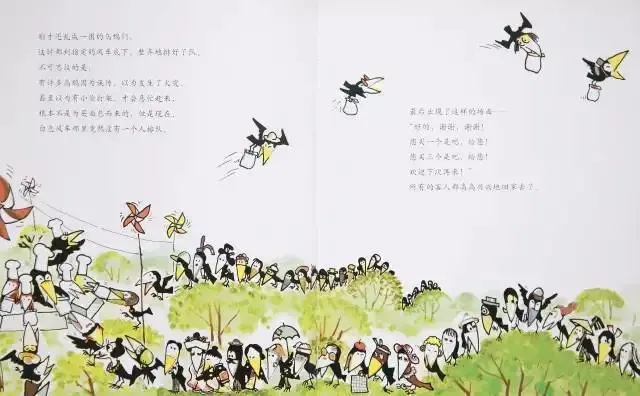 刚才还乱成一团的乌鸦们，
这时都到指定的风车底下，整齐地排好了队。
不可思议的是，
有许多乌鸦因为误传，以为发生了火灾，
甚至以为有小偷打架，才会急忙赶来，
根本不是为买面包而来的，但是现在，
白色风车那里竟然没有一个人排队。
最后出现了这样的场面——
"好的，谢谢，谢谢！
您买一个是吧，给您！
您买三个是吧，给您！
欢迎下次再来！"
所有的客人都高高兴兴地回家去了。